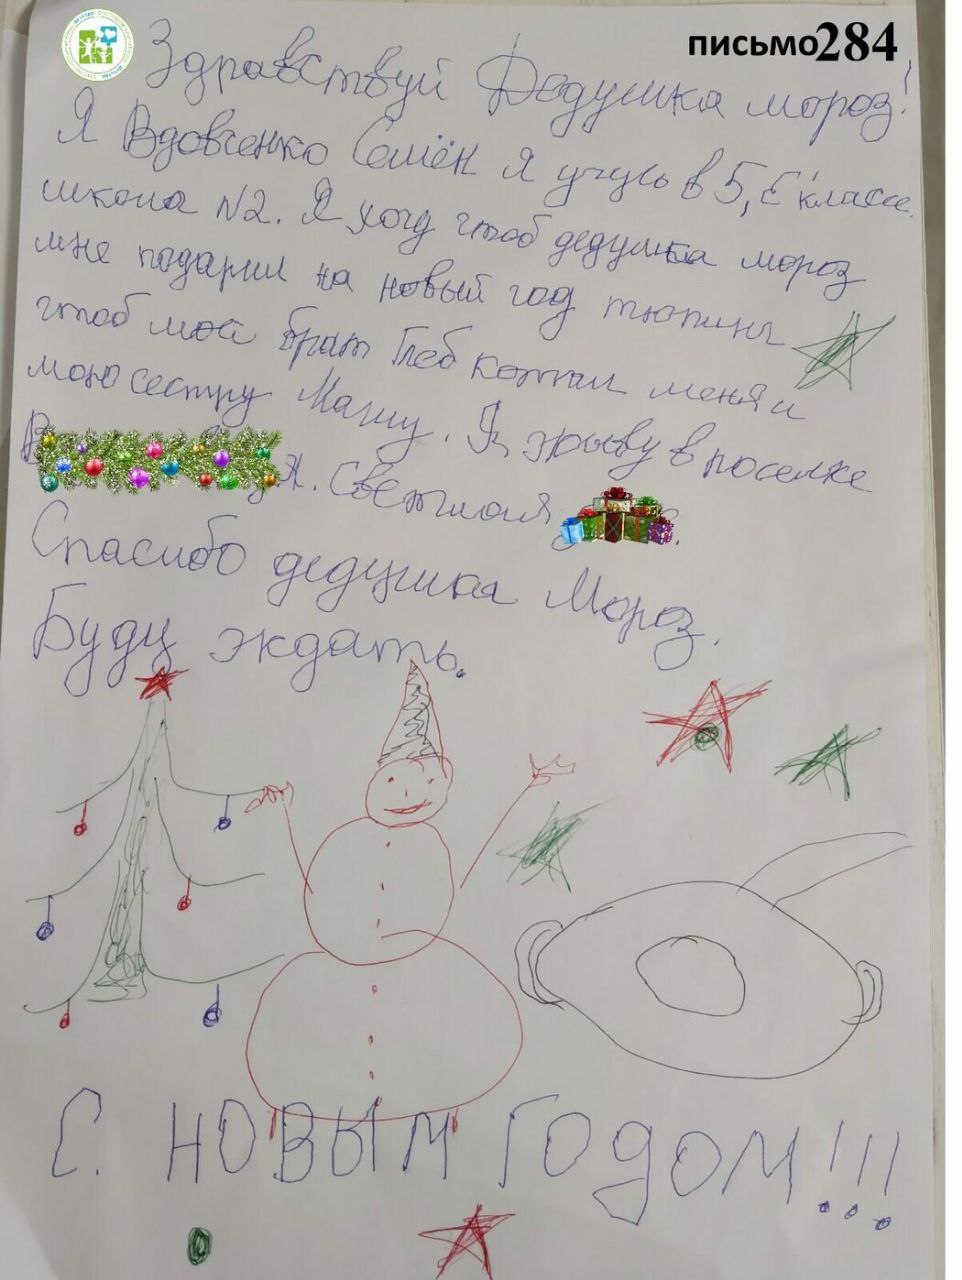 письмо284
Здравствуй Дедушка мороз!
Я Вдовченко Семён я учусь в 5,Б классе.
школа №2. Я хочу чтоб дедушка мороз
мне подарил на новый год тюпинг
чтоб мой брат Глеб коттал меня и
мою сестру Машу. Я зрыву в поселке
В Светлая
Спасибо дедушка Мороз.
Буду экдать.
С НОВЫМ ГОДОМ!!!